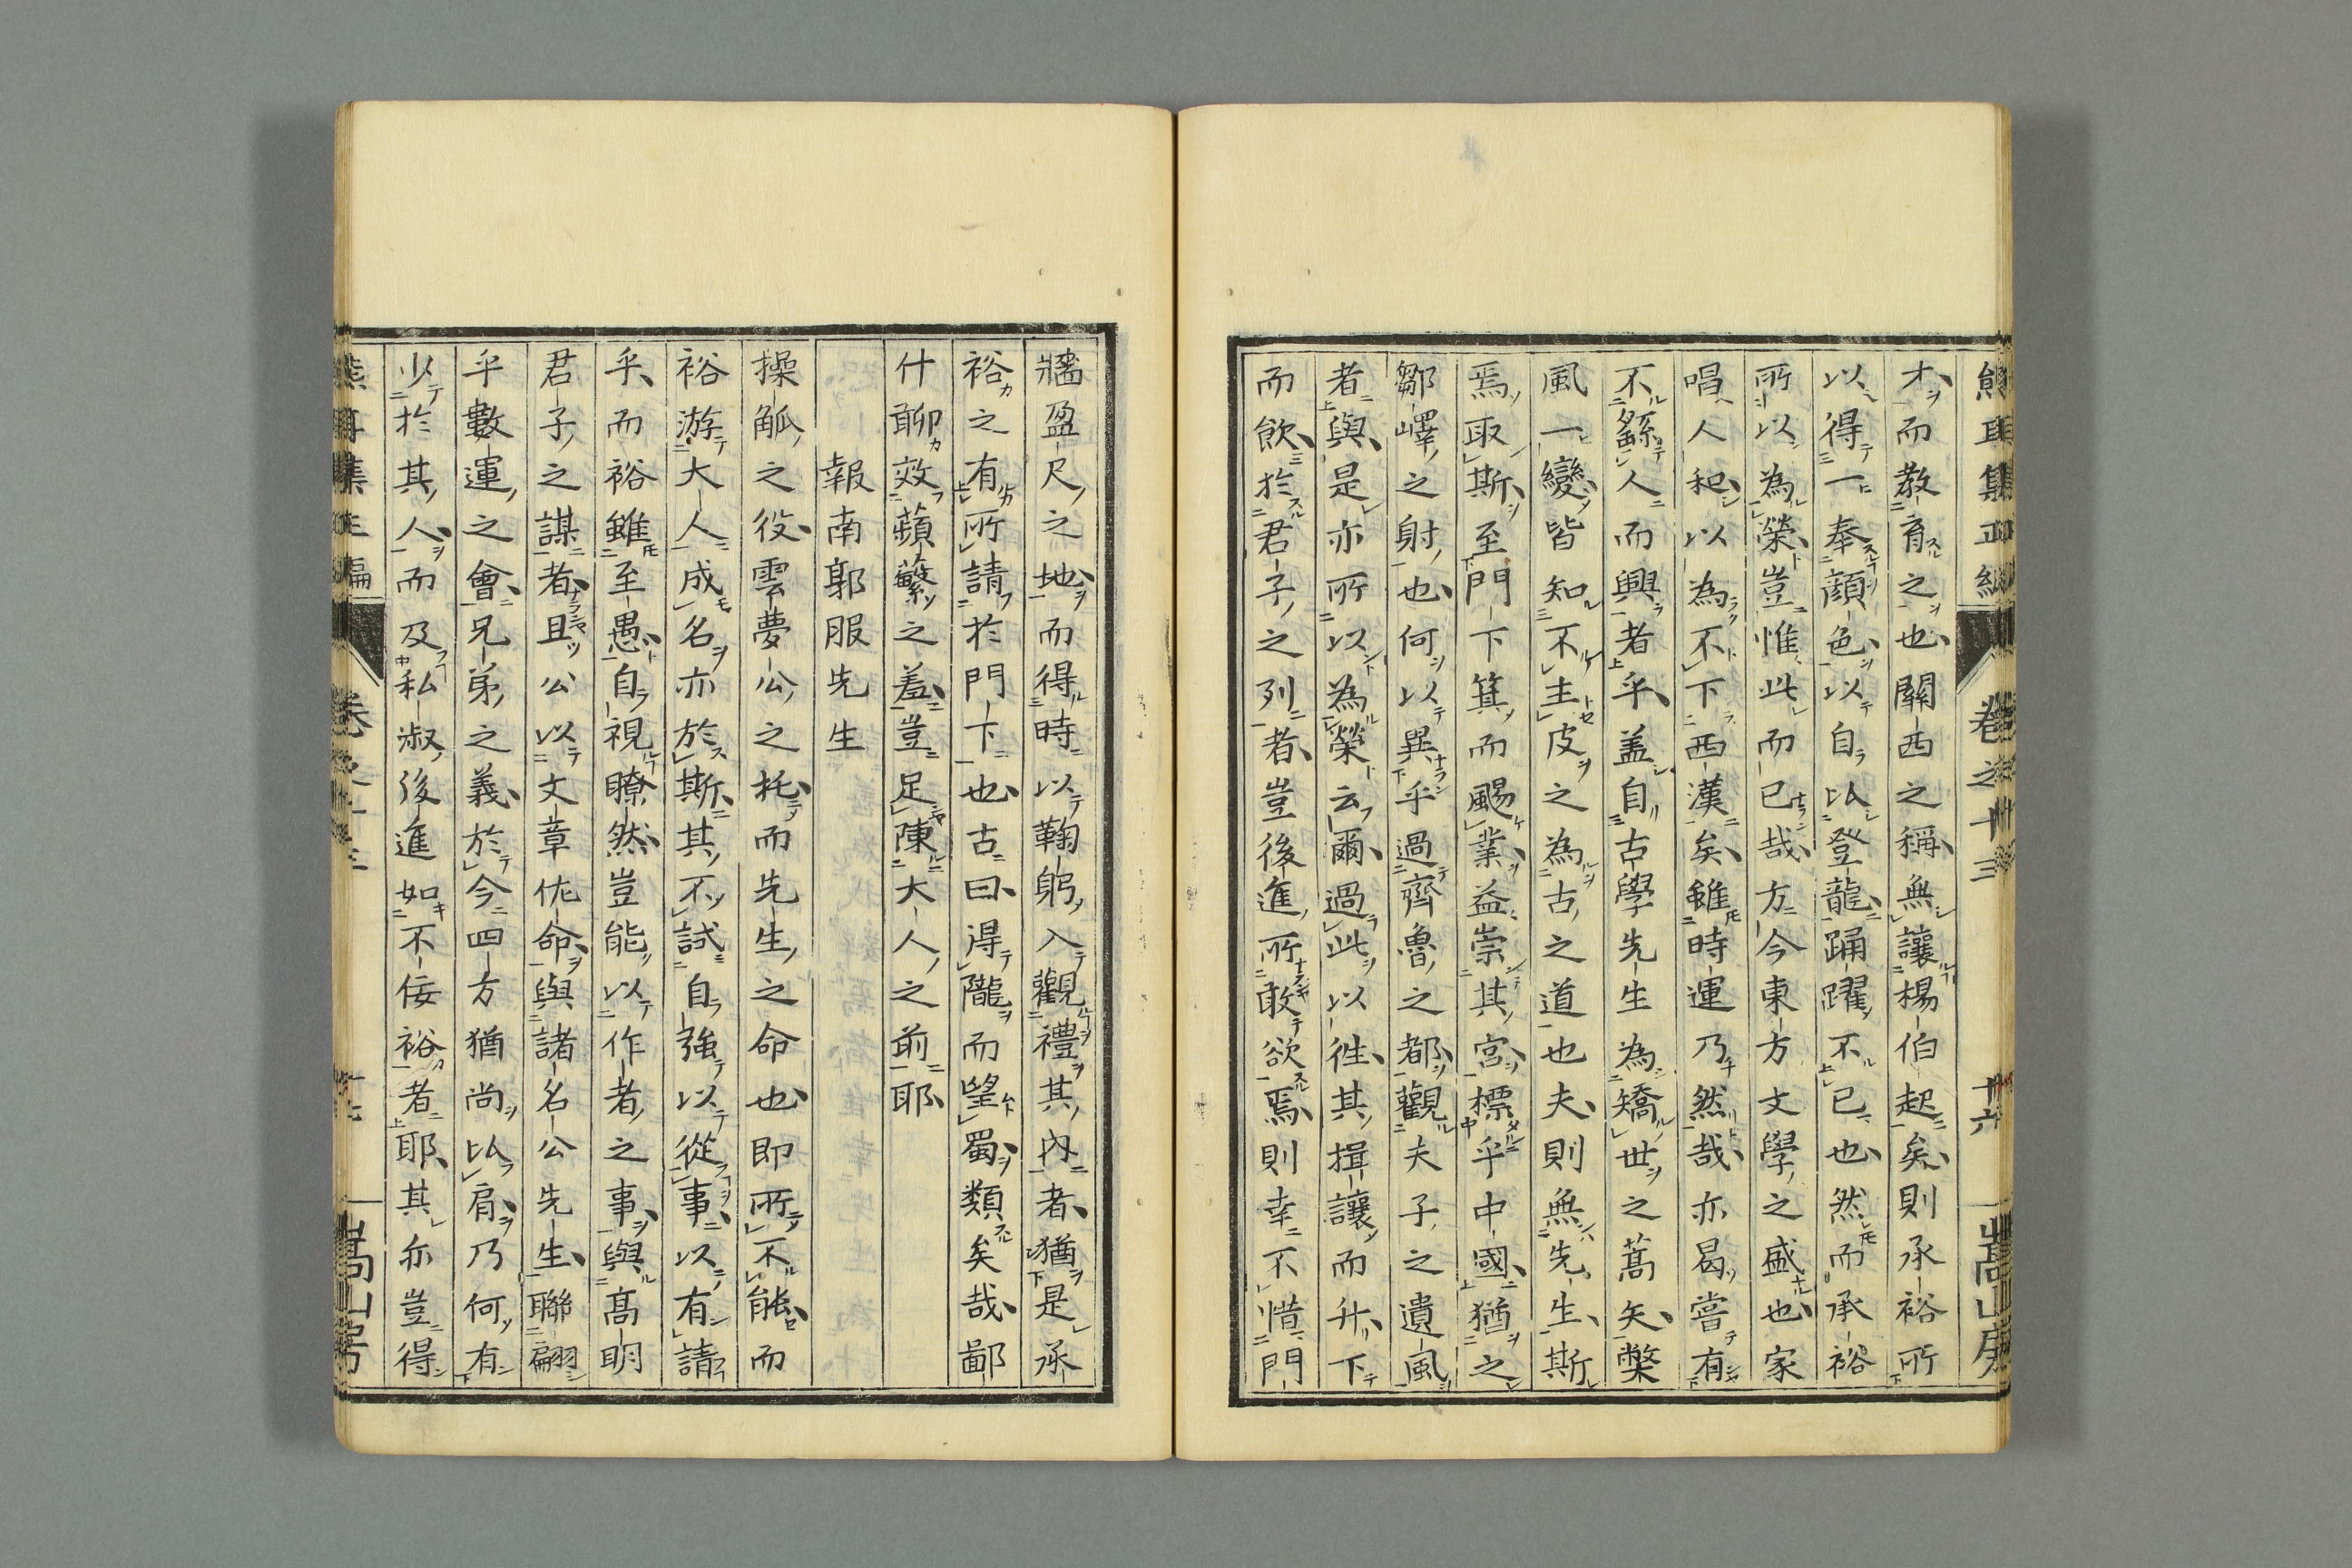 才而教育之也關西之稱無讓楊伯起矣則承裕所
以得一奉顔色以自以登龍踊躍不已也然而承裕
所以為榮豈惟此而已哉方今東方文學之盛也家
唱人和以為不下西漢矣雖時運乃然哉亦曷嘗有
不繇人而興者乎盖自古學先生為矯世之蒿矢獘
風一變皆知不主皮之為古之道也夫則無先生斯
焉取斯至門下箕而颺業益崇其宮標乎中國猶之
鄒嶧之射也何以異乎過齊魯之都觀夫子之遺風
者與是亦所以為榮云爾過此以徃其揖讓而升下
而飲於君子之列者豈後進所敢欲焉則幸不惜門
牆盈尺之地而得時以鞠躬入觀禮其內者猶是承
裕之有所請於門下也古曰得隴而望蜀類矣哉鄙
什聊效蘋蘩之羞豈足陳大人之前耶
報南郭服先生
操觚之役雲夢公之托而先生之命也即所不能而
裕游大人成名亦於斯其不試自強以從事以有請
乎而裕雖至愚自視瞭然豈能以作者之事與髙明
君子之謀者且公以文章佐命與諸名公先生聯翩
乎數運之會兄弟之義於今四方猶尚以肩乃何有
少於其人而及私淑後進如不佞裕者耶其亦豈得
卷之十三
嵩山房